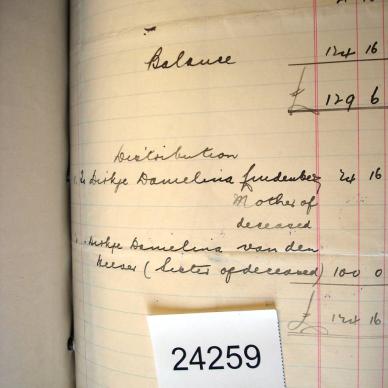 Balance 124 16
£ 129 6
Distribution
To Dirkje Damelina 24 16
Mother of
deceased
Dirkje Damelina van den
Heever (Sister of deceased) 100 0
£ 124 16
24259